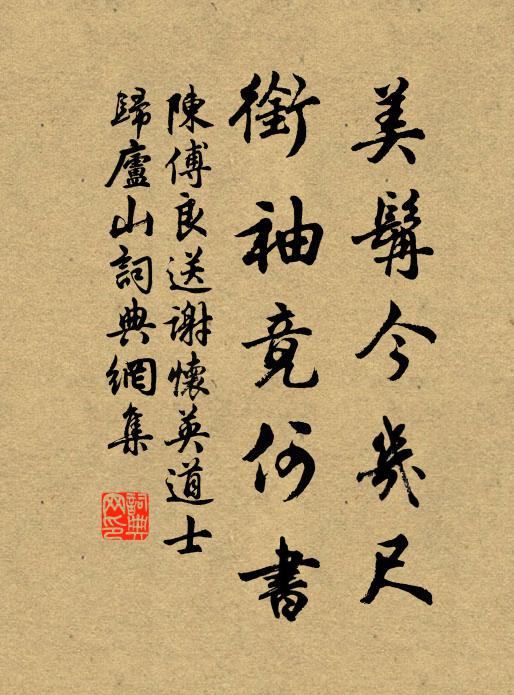 美髯今幾尺
銜袖竟何書
陳傅良送謝懷英道士
歸廬山詞典網集
詞典网印